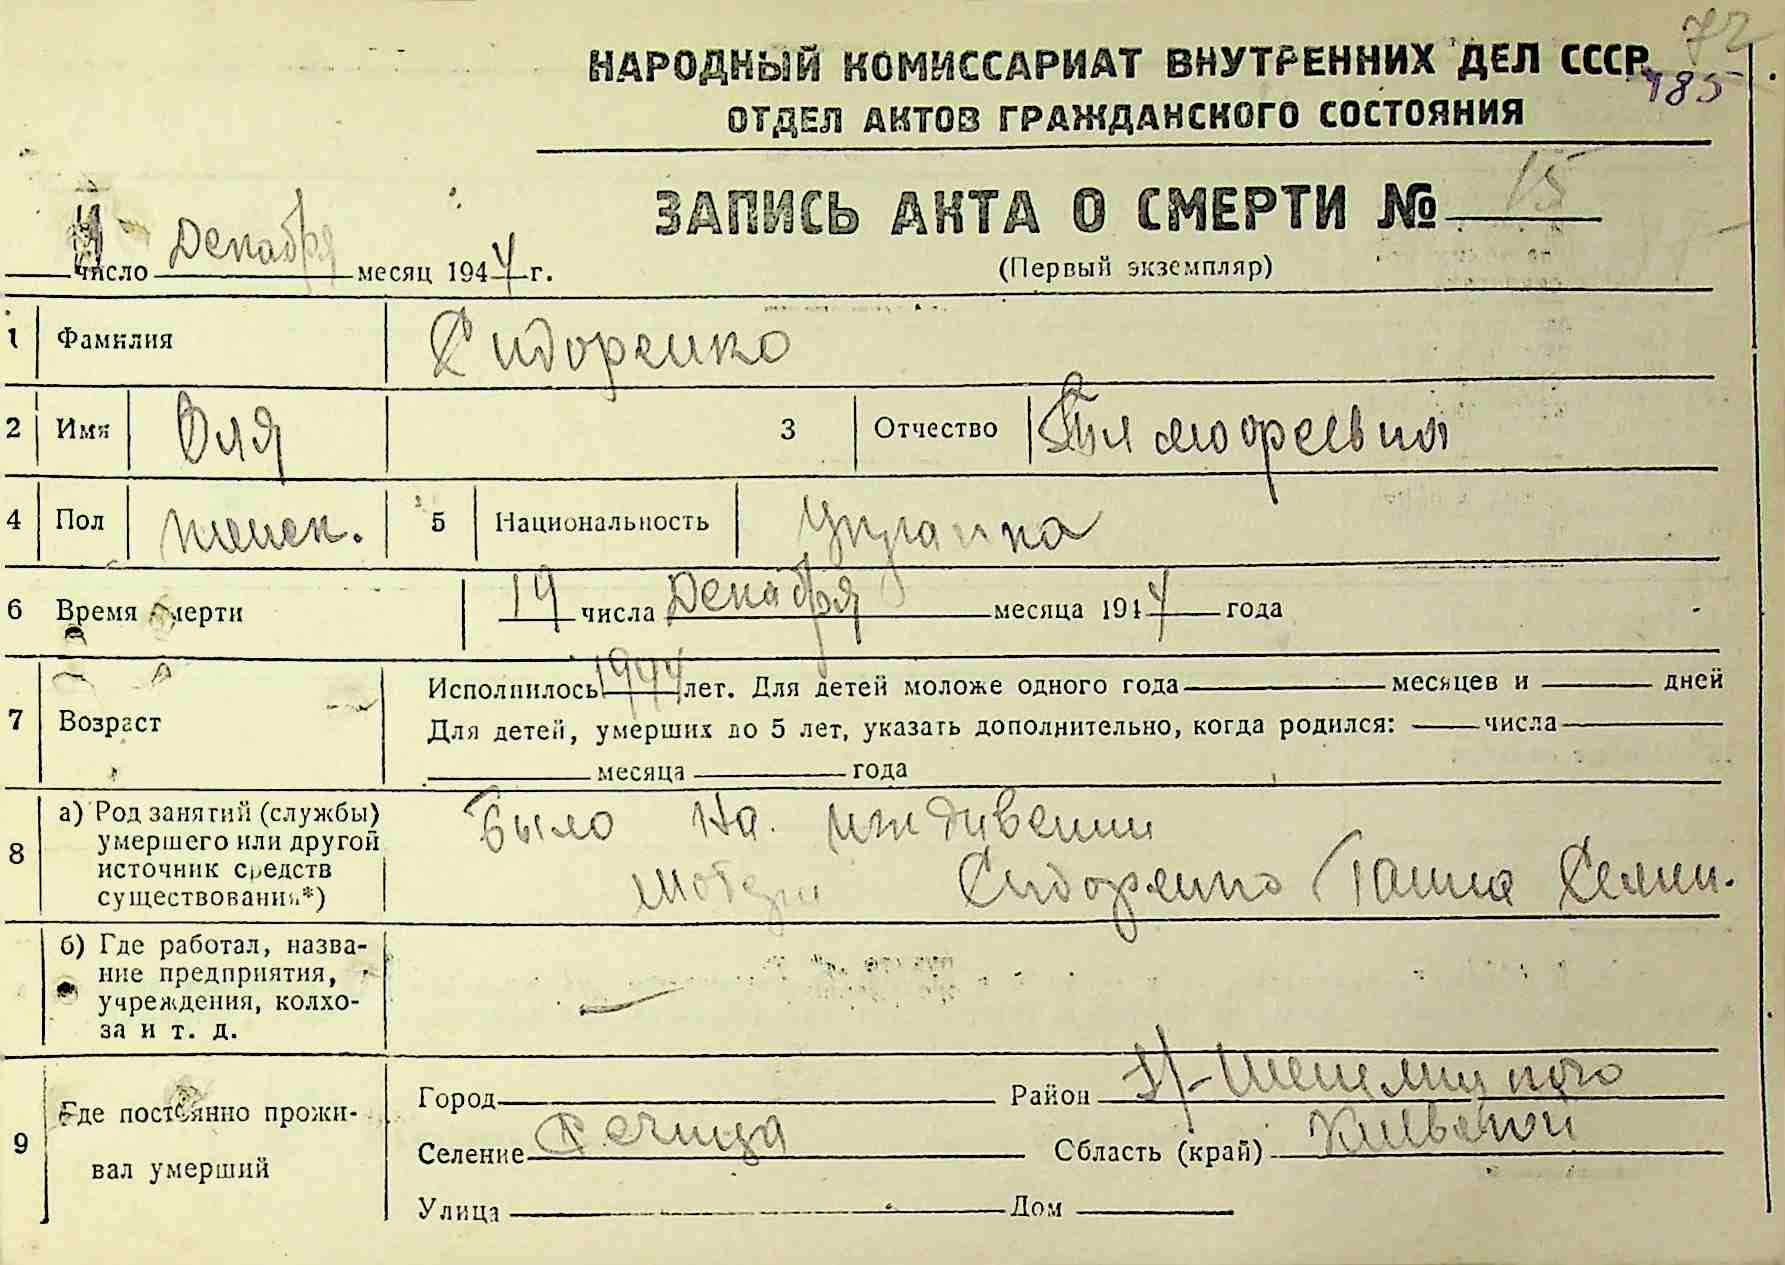 72
НАРОДНЫЙ КОМИССАРИАТ ВНУТРЕННИХ ДЕЛ СССР
185
ОТДЕЛ АКТОВ ГРАЖДАНСКОГО СОСТОЯНИЯ
ЗАПИСЬ АКТА О СМЕРТИ № 15
число Декабря месяц 1944 г.
(Первый экземпляр)
1 Фамилия Сидоренко
2 Имя Оля 3 Отчество
4 Пол женск. 5 Национальность Украинка
6 Время смерти 19 числа Декабря месяца 1944 года
7 Возраст Исполнилось 1944 лет. Для детей моложе одного года месяцев и дней
Для детей, умерших до 5 лет, указать дополнительно, когда родился: числа
месяца года
8 а) Род занятий (службы) умершего или другой источник средств существования*) Было на иждивении
матери Сидоренко Ганна Семен.
б) Где работал, название предприятия, учреждения, колхоза и т. д. —
9 Где постоянно проживал умерший
Город Район Н-Шепелицкого
Селение Речица Область (край) Киевской
Улица Дом